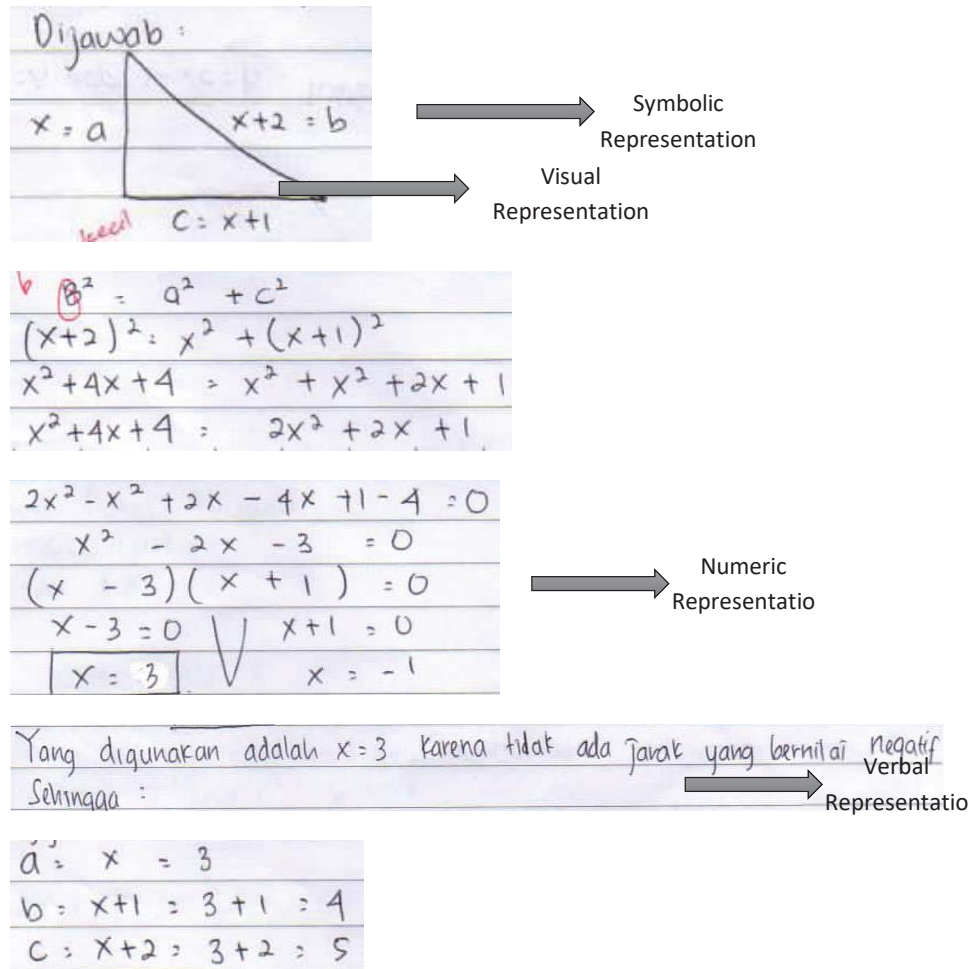 Dijawab :
x = a
x+2 = b
Symbolic
Representation
Visual
Representation
kecil
C = x+1
b
B² = a² + c²
(x+2)² = x² + (x+1)²
x² + 4x + 4 = x² + x² + 2x + 1
x² + 4x + 4 = 2x² + 2x + 1
2x² - x² + 2x - 4x + 1 - 4 = 0
x² - 2x - 3 = 0
(x - 3)(x + 1) = 0
x - 3 = 0 V x + 1 = 0
x = 3 x = -1
Numeric
Representatio
Yang digunakan adalah x = 3 karena tidak ada jarak yang bernilai negatif
Sehingga :
Verbal
Representatio
a = x = 3
b = x+1 = 3+1 = 4
c = x+2 = 3+2 = 5